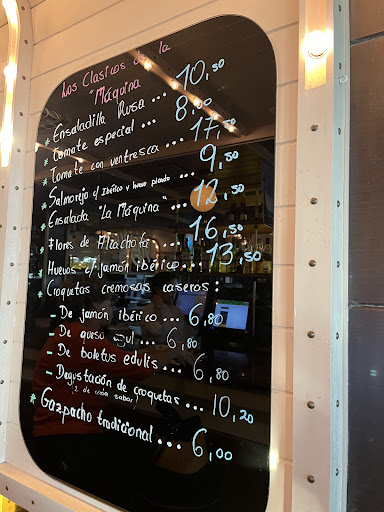 Los Clásicos de la
"Máquina
* Ensaladilla Rusa ... 10,50
* Tomate especial ... 8,00
* Tomate con ventresca ... 17,50
* Salmorejo c/ Ibérico y huevo picado ... 9,50
* Ensalada "La Máquina" ... 12,50
* Flores de Alcachofa ... 16,50
* Huevos c/ jamón ibérico ... 13,50
* Croquetas cremosas caseros:
- De jamón ibérico ... 6,80
- De queso azul ... 6,80
- De boletus edulis ... 6,80
- Degustación de croquetas ... 10,20
(2 de cada sabor)
* Gazpacho tradicional ... 6,00